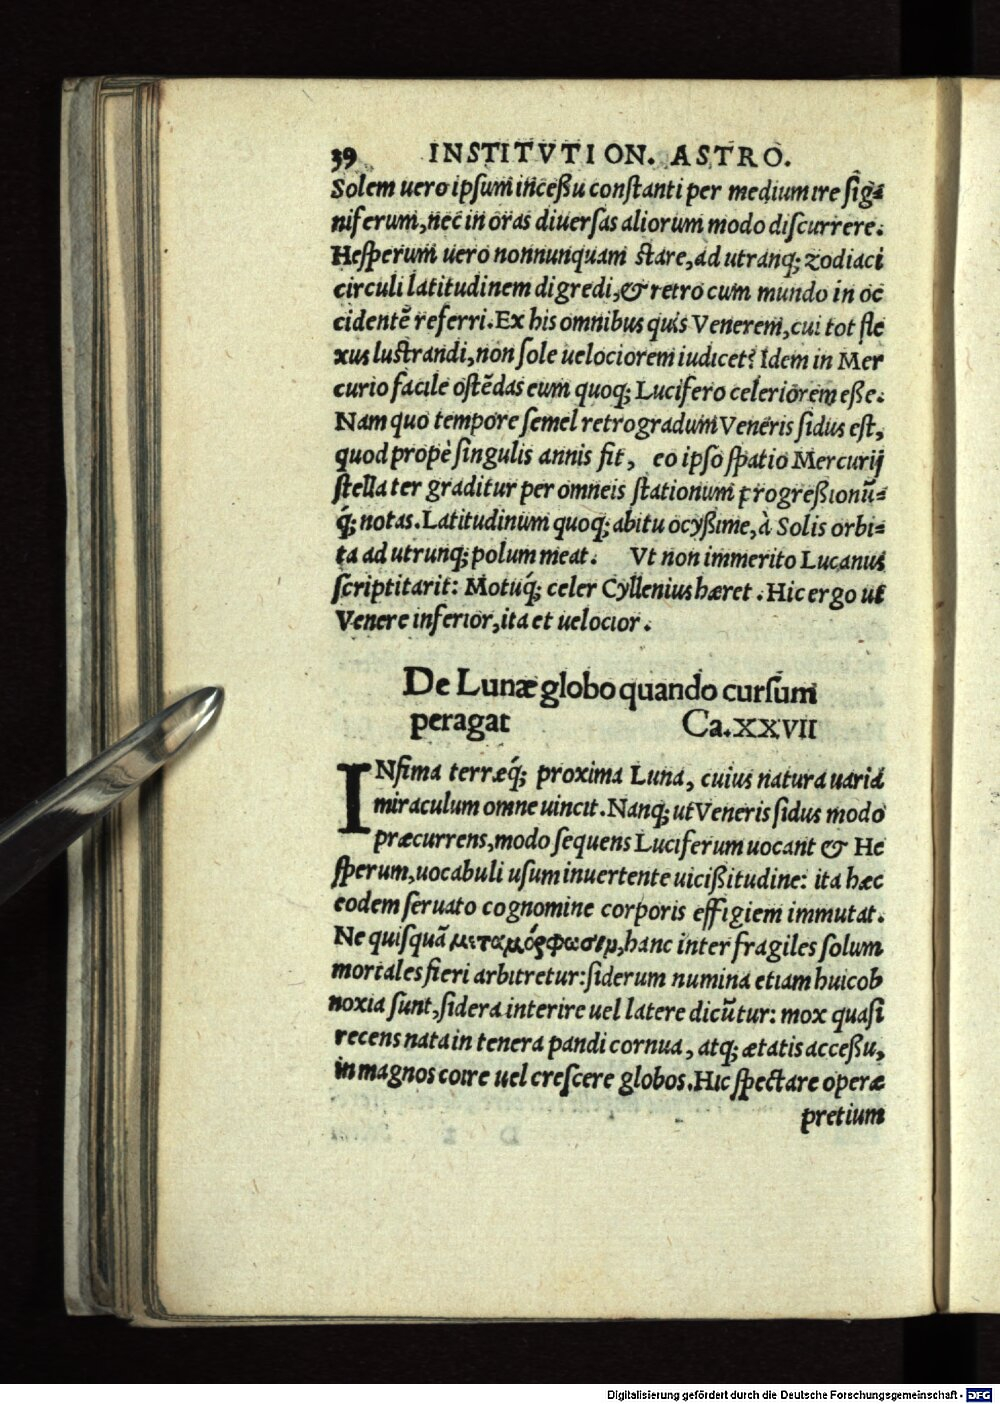 39 INSTITVTION. ASTRO.
Solem uero ipſum inceßu conſtanti per medium ire ſig=
niferum, nec in oras diuerſas aliorum modo diſcurrere.
Heſperum uero nonnunquam ſtare, ad utranq; zodiaci
circuli latitudinem digredi, & retro cum mundo in oc
cidentē referri. Ex his omnibus quis Venerem, cui tot fle
xus luſtrandi, non ſole uelociorem iudicet? Idem in Mer
curio facile oſtēdas eum quoq; Lucifero celeriorem eße.
Nam quo tempore ſemel retrogradum Veneris ſidus eſt,
quod propè ſingulis annis fit, eo ipſo ſpatio Mercurij
ſtella ter graditur per omneis ſtationum progreßionū=
q́; notas. Latitudinum quoq; abitu ocyßime, à Solis orbi=
ta ad utrunq; polum meat. Vt non immerito Lucanus
ſcriptitarit: Motuq́; celer Cyllenius hæret. Hic ergo ut
Venere inferior, ita et uelocior.
De Lunæ globo quando curſum
peragat Ca. XXVII
INfima terræq́; proxima Luna, cuius natura uaria
miraculum omne uincit. Nanq; ut Veneris ſidus modo
præcurrens, modo ſequens Luciferum uocant & He
ſperum, uocabuli uſum inuertente uicißitudine: ita hæc
eodem ſeruato cognomine corporis effigiem immutat.
Ne quiſquā μεταμόρφωσιμ, hanc inter fragiles ſolum
mortales fieri arbitretur: ſiderum numina etiam huic ob
noxia ſunt, ſidera interire uel latere dicūtur: mox quaſi
recens nata in tenera pandi cornua, atq; ætatis acceßu,
in magnos coire uel creſcere globos. Hic ſpectare operæ
pretium
Digitalisierung gefördert durch die Deutsche Forschungsgemeinschaft - DFG